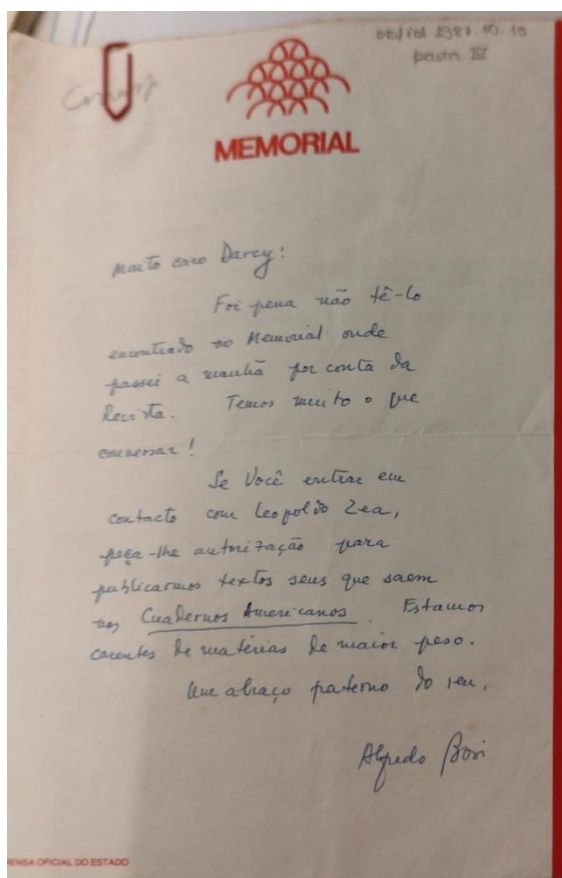 1987.10.19
pasta IV
MEMORIAL
Muito caro Darcy:
Foi pena não tê-lo
encontrado no Memorial onde
passei a manhã por conta da
Revista. Temos muito o que
conversar!
Se Você entrar em
contacto com Leopoldo Zea,
peça-lhe autorização para
publicarmos textos seus que saem
nos Cuadernos Americanos. Estamos
carentes de matérias de maior peso.
Um abraço paterno do seu,
Alfredo Bosi
RENSA OFICIAL DO ESTADO